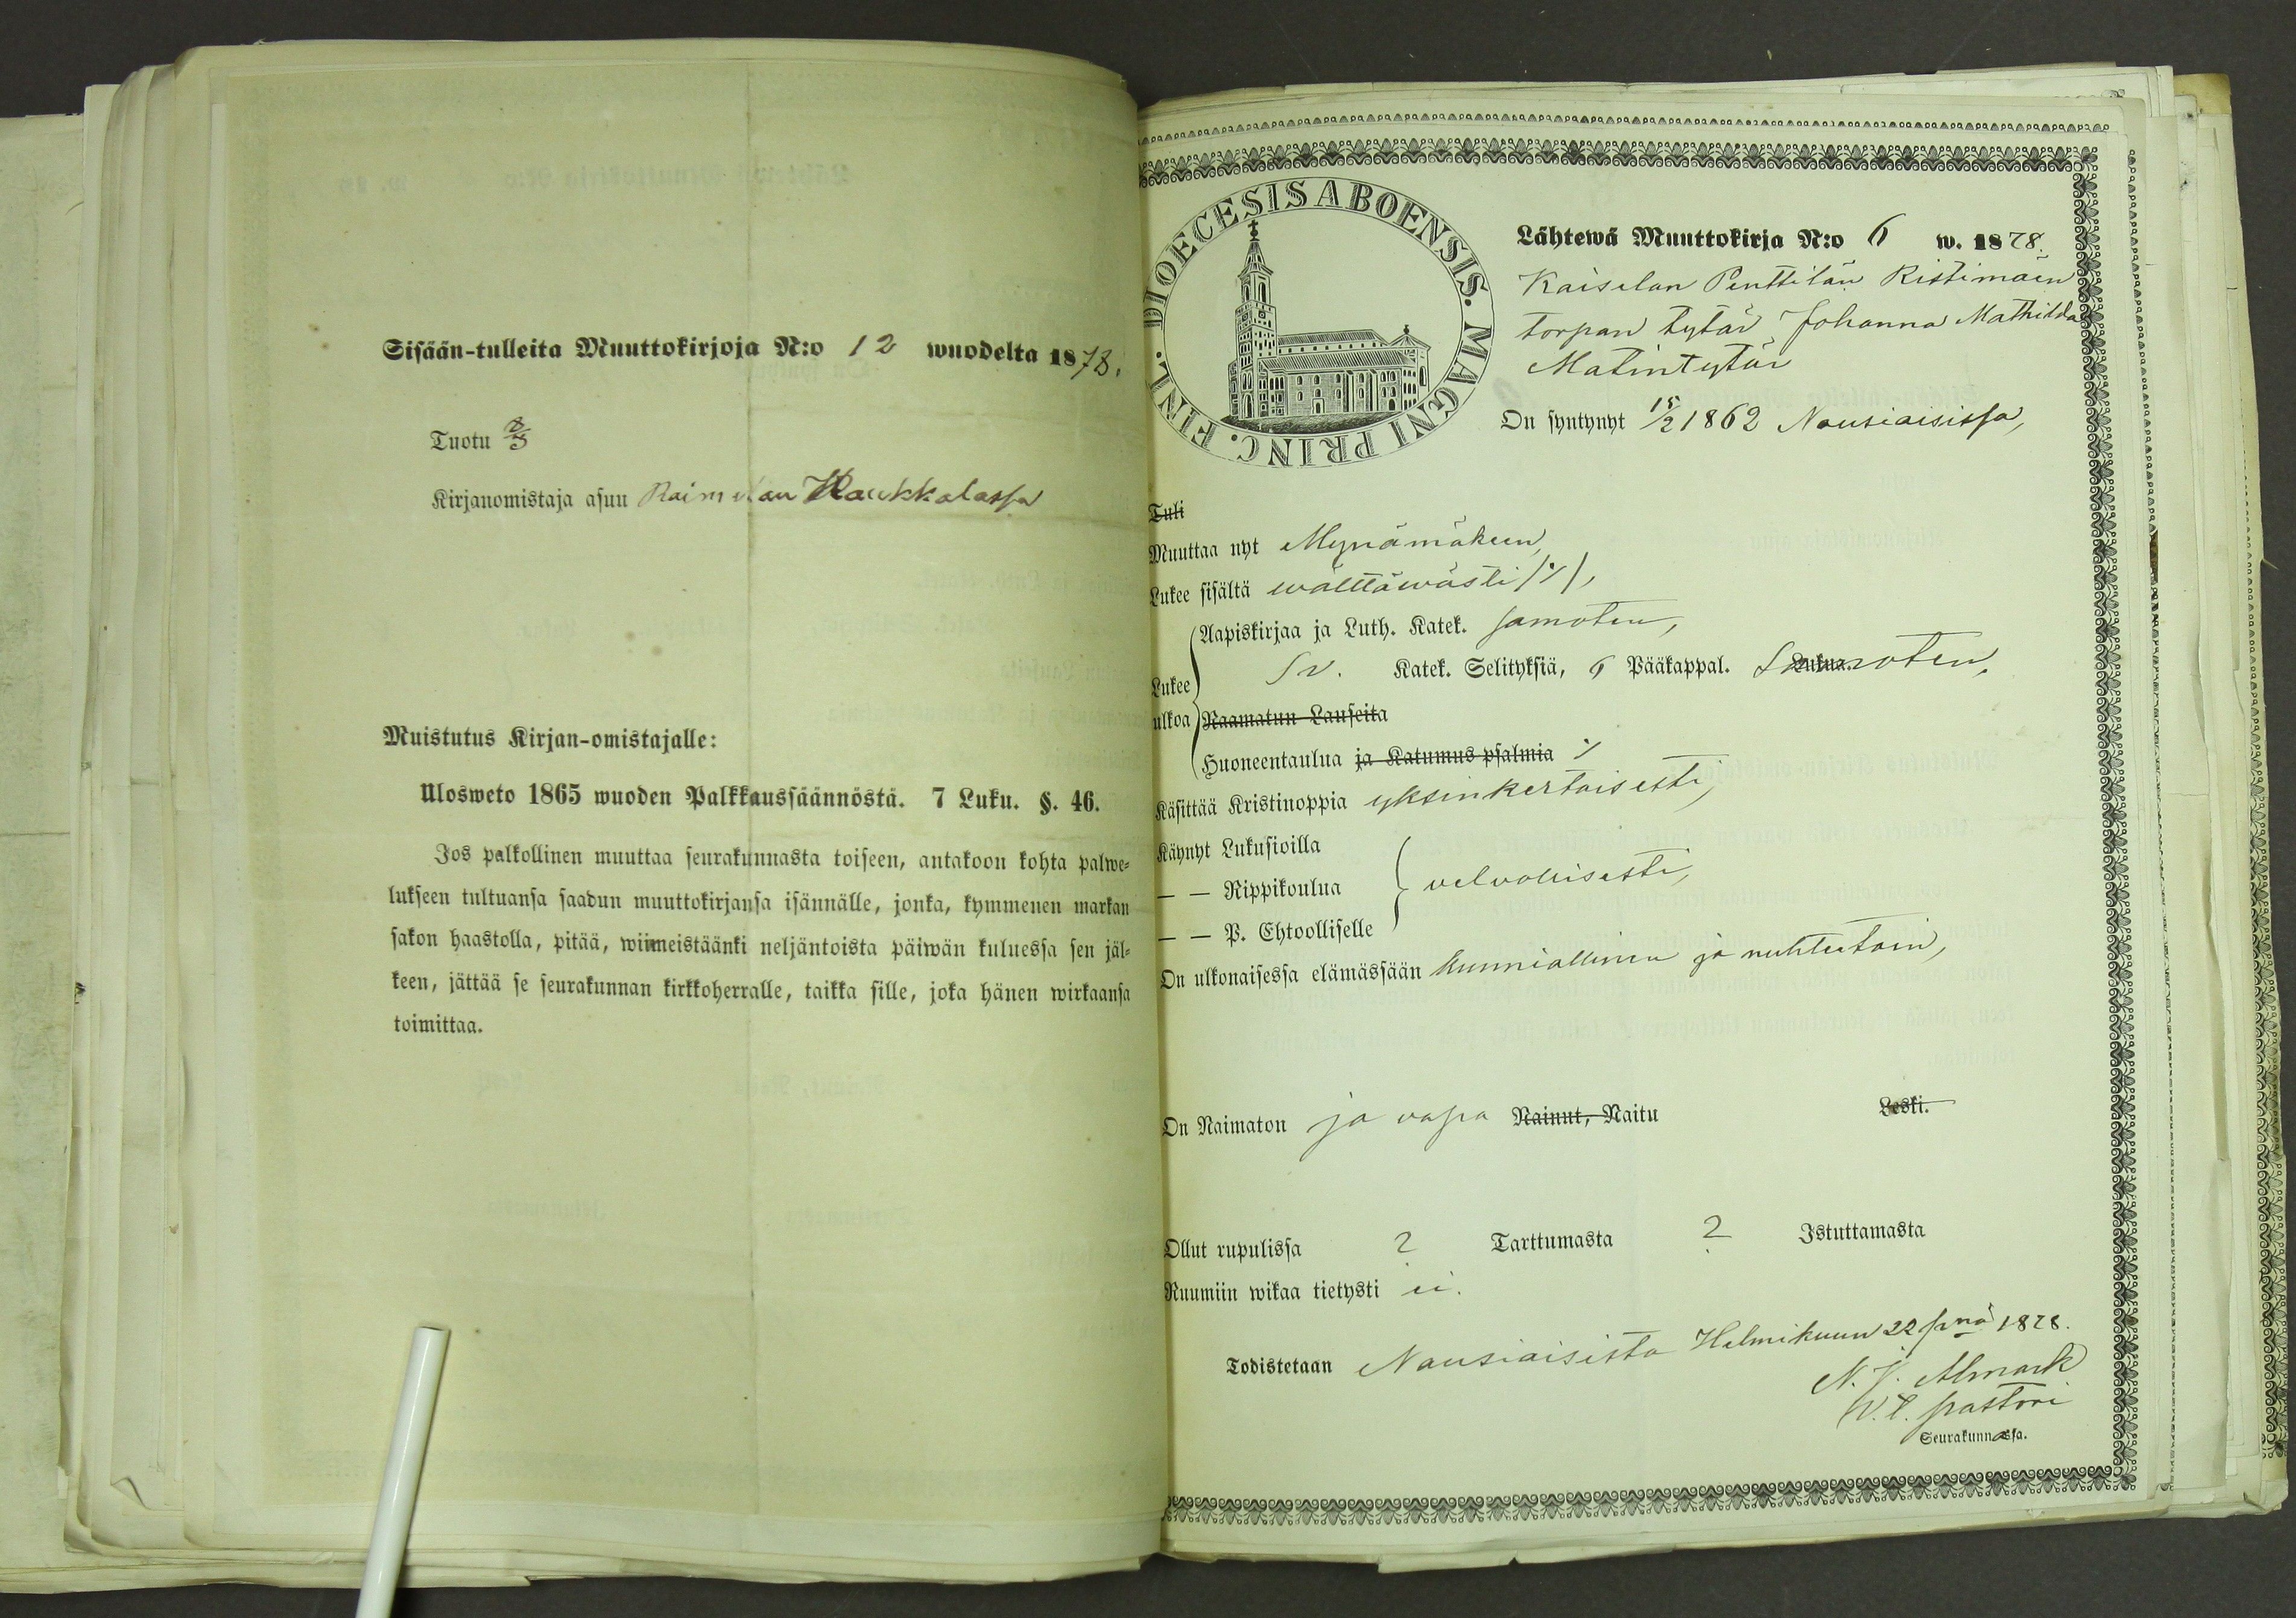 Sisään-tulleita Muuttokirjoja N:o 12 wuodelta 1878.
Tuotu 8/3
Kirjanomistaja asuu Raimelan Haukkalassa
Muistutus Kirjan-omistajalle:
Ulosweto 1865 wuoden Palkkaussäännöstä. 7 Luku. §. 46.
Jos palkollinen muuttaa seurakunnasta toiseen, antakoon kohta palwe-
lukseen tultuansa saadun muuttokirjansa isännälle, jonka, kymmenen markan
sakon haastolla, pitää, wiimeistäänki neljäntoista päiwän kuluessa sen jäl-
keen, jättää se seurakunnan kirkkoherralle, taikka sille, joka hänen wirkaansa
toimittaa.
DIOECESIS ABOENSIS. MAGNI PRINC. FINL.
Lähtewä Muuttokirja N:o 6 w. 1878.
Kaiselan Penttilän Ristimäen
torpan tytär Johanna Mathilda
Matintytär
On syntynyt 15/2 1862 Nousiaisissa,
Tuli
Muuttaa nyt Mynämäkeen,
Lukee sisältä wälttäwästi /./,
Aapiskirjaa ja Luth. Katek. samoten,
Sv. Katek. Selityksiä, 6 Pääkappal. Lukua. Samoten,
Lukee
ulkoa
Raamatun Lauseita
Huoneentaulua ja Katumus psalmia ./.
Käsittää Kristinoppia yksinkertaisesti,
Käynyt Lukusioilla
— — Rippikoulua velvollisesti,
— — P. Ehtoolliselle
On ulkonaisessa elämässään kunniallinen ja nuhteetoin,
On Naimaton ja vapa Nainut, Naitu Leski.
Ollut rupulissa ? Tarttumasta ? Istuttamasta
Ruumiin wikaa tietysti ei.
Todistetaan Nousiaisista Helmikuun 22 pnä 1878.
N. J. Almark
W. t. pastori
Seurakunnassa.